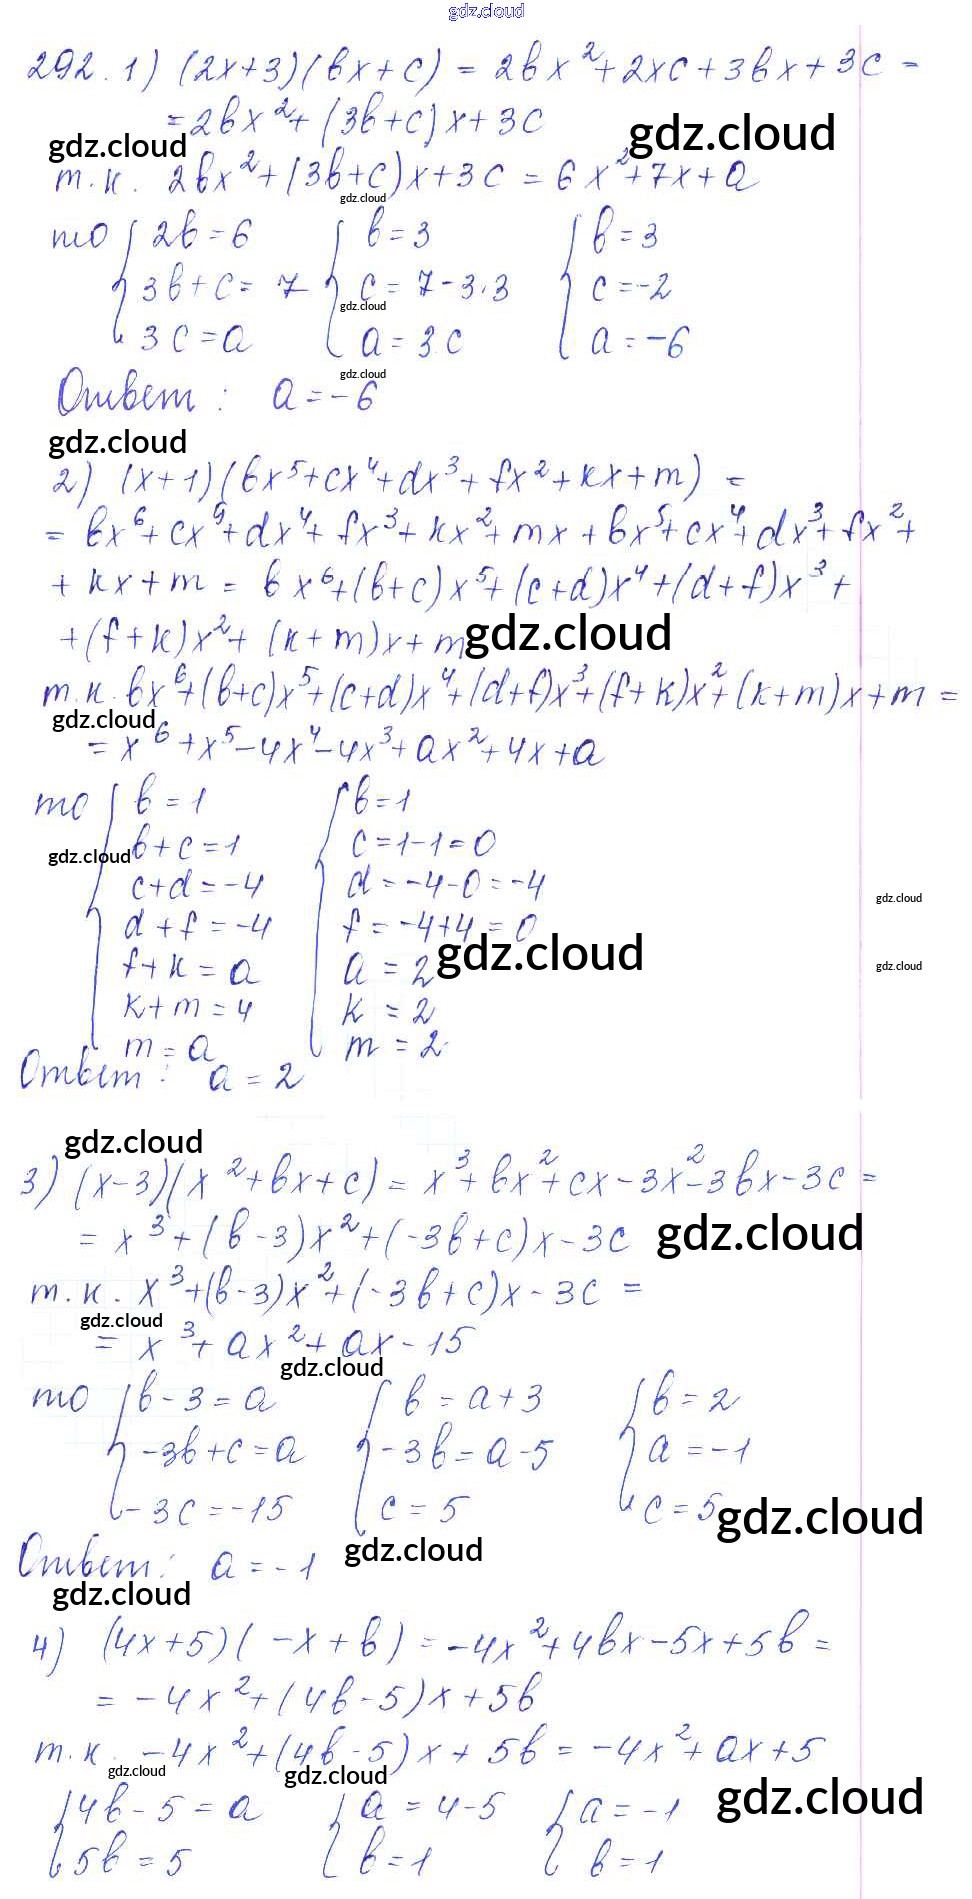 gdz.cloud
292. 1) (2x+3)(bx+c) = 2bx²+2xc+3bx+3c =
= 2bx²+(3b+c)x+3c
gdz.cloud
gdz.cloud
т.к. 2bx²+(3b+c)x+3c = 6x²+7x+a
gdz.cloud
то { 2b=6 { b=3 { b=3
3b+c=7 c=7-3·3 c=-2
gdz.cloud
3c=a a=3c a=-6
gdz.cloud
Ответ: a=-6
gdz.cloud
2) (x+1)(bx⁵+cx⁴+dx³+fx²+kx+m) =
= bx⁶+cx⁵+dx⁴+fx³+kx²+mx+bx⁵+cx⁴+dx³+fx²+
+kx+m = bx⁶+(b+c)x⁵+(c+d)x⁴+(d+f)x³+
+(f+k)x²+(k+m)x+m
gdz.cloud
т.к. bx⁶+(b+c)x⁵+(c+d)x⁴+(d+f)x³+(f+k)x²+(k+m)x+m =
gdz.cloud
= x⁶+x⁵-4x⁴-4x³+ax²+4x+a
то { b=1 { b=1
b+c=1 c=1-1=0
gdz.cloud
c+d=-4 d=-4-0=-4
gdz.cloud
d+f=-4 f=-4+4=0
gdz.cloud
f+k=a a=2
gdz.cloud
k+m=4 k=2
m=a m=2
Ответ: a=2
gdz.cloud
3) (x-3)(x²+bx+c) = x³+bx²+cx-3x²-3bx-3c =
= x³+(b-3)x²+(-3b+c)x-3c
gdz.cloud
т.к. x³+(b-3)x²+(-3b+c)x-3c =
gdz.cloud
= x³+ax²+ax-15
gdz.cloud
то { b-3=a { b=a+3 { b=2
-3b+c=a -3b=a-5 a=-1
-3c=-15 c=5 c=5
gdz.cloud
Ответ: a=-1
gdz.cloud
gdz.cloud
4) (4x+5)(-x+b) = -4x²+4bx-5x+5b =
= -4x²+(4b-5)x+5b
т.к. -4x²+(4b-5)x+5b = -4x²+ax+5
gdz.cloud
gdz.cloud
gdz.cloud
{ 4b-5=a { a=4-5 { a=-1
5b=5 b=1 b=1